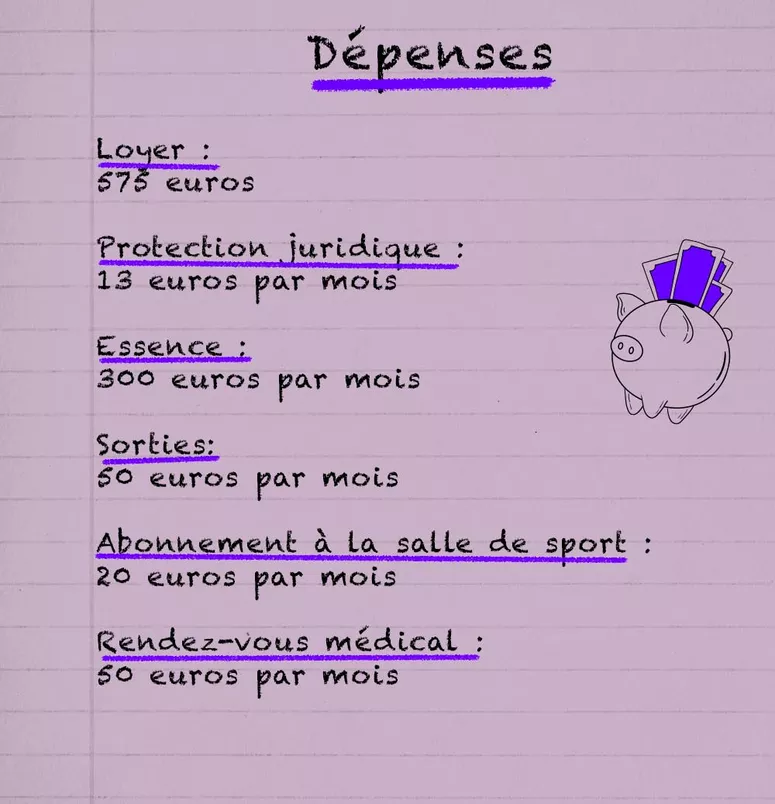 Dépenses
Loyer :
575 euros
Protection juridique :
13 euros par mois
Essence :
300 euros par mois
Sorties:
50 euros par mois
Abonnement à la salle de sport :
20 euros par mois
Rendez-vous médical :
50 euros par mois